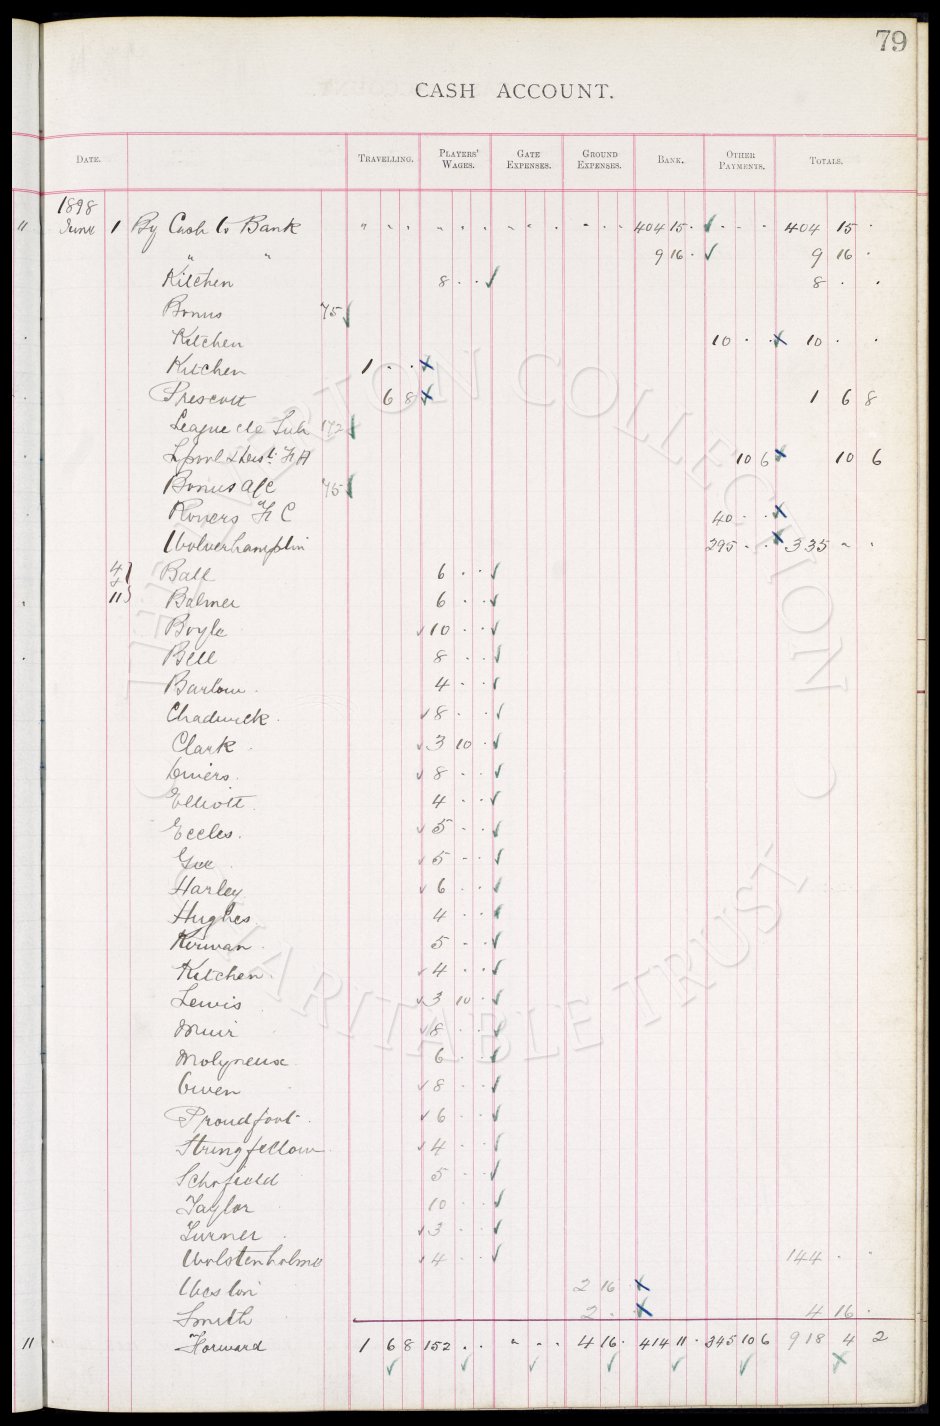 79
CASH ACCOUNT.
DATE. TRAVELLING. PLAYERS' WAGES. GATE EXPENSES. GROUND EXPENSES. BANK. OTHER PAYMENTS. TOTALS.
1898
" June 1 By Cash to Bank " · · " · · " · · " · · 404 15 · ✓ · · · 404 15 ·
" " 9 16 · ✓ 9 16 ·
Kitchen 8 · · ✓ 8 · ·
Bonus 75 ✓
Kitchen 10 · · x 10 · ·
Kitchen 1 · · x
Prescott 6 8 x 1 6 8
League a/c Sub 172 ✓
L'pool & Dist. F A 10 6 x 10 6
Bonus a/c 75 ✓
Rovers F C 40 · · x
Wolverhampton 295 · · x 335 " ·
4 & 11 } Ball 6 · · ✓
Balmer 6 · · ✓
Boyle ✓ 10 · · ✓
Bell 8 · · ✓
Barlow 4 · · ✓
Chadwick ✓ 8 · · ✓
Clark ✓ 3 10 · ✓
Divers ✓ 8 · · ✓
Elliott 4 · · ✓
Eccles ✓ 5 · · ✓
Gee ✓ 5 · · ✓
Harley ✓ 6 · · ✓
Hughes 4 · · ✓
Kirwan 5 · · ✓
Kitchen ✓ 4 · · ✓
Lewis ✓ 3 10 · ✓
Muir ✓ 8 · · ✓
Molyneux 6 · · ✓
Owen ✓ 8 · · ✓
Proudfoot ✓ 6 · · ✓
Stringfellow ✓ 4 · · ✓
Schofield 5 · · ✓
Taylor 10 · · ✓
Turner ✓ 3 · · ✓
Wolstenholme ✓ 4 · · ✓ 144 · ·
Weston 2 16 x
Smith 2 · · x 4 16 ·
11 Forward 1 6 8 152 · · " · · 4 16 · 414 11 · 345 10 6 918 4 2
✓ ✓ ✓ ✓ ✓ ✓ x
THE EVERTON COLLECTION CHARITABLE TRUST